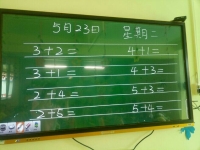 5月23日 星期二
3+2= 4+1=
3+1= 4+3=
2+4= 5+3=
2+5= 5+4=